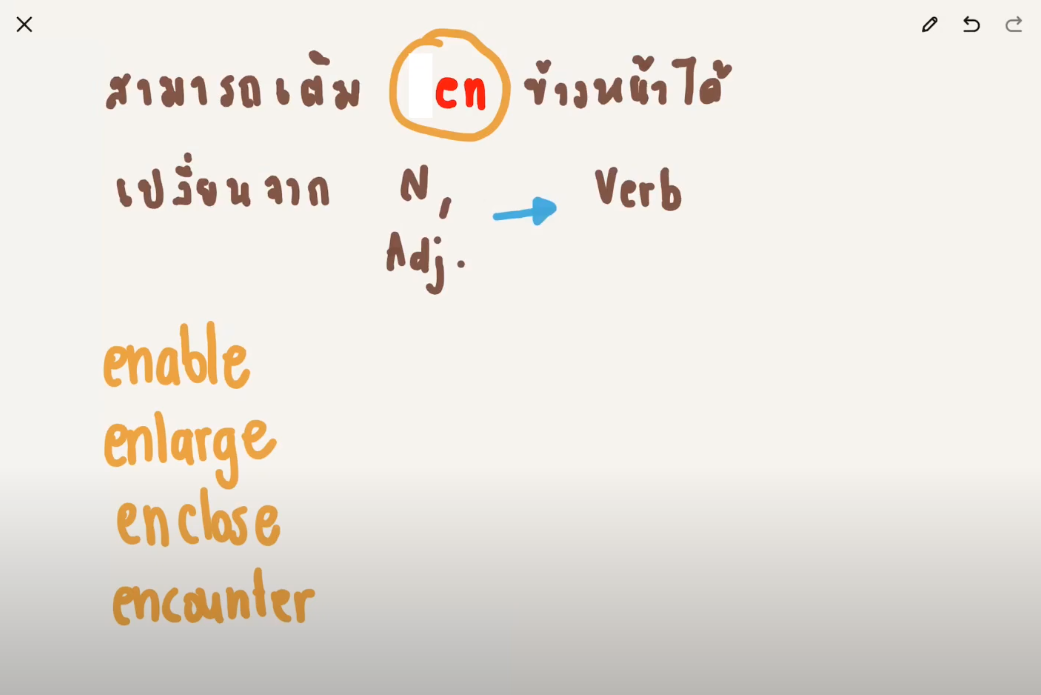 สามารถเติม en ข้างหน้าได้
เปลี่ยนจาก N, → Verb
Adj.
enable
enlarge
enclose
encounter